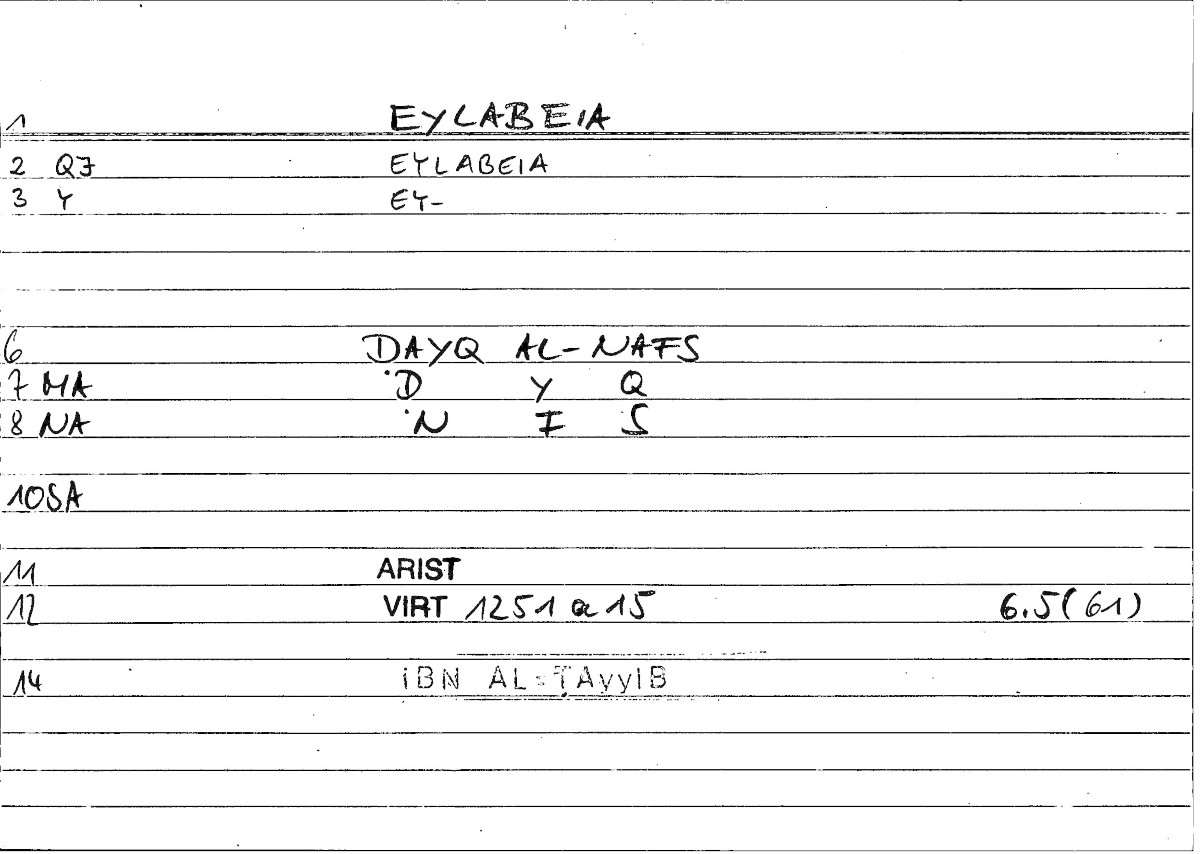 1 EYLABEIA
2 QJ EYLABEIA
3 Y EY-
6 DAYQ AL-NAFS
7 MA ·D Y Q
8 NA ·N F S
10 SA
11 ARIST
12 VIRT 1251 a 15 6.5(61)
14 IBN AL-ṬAyyIB